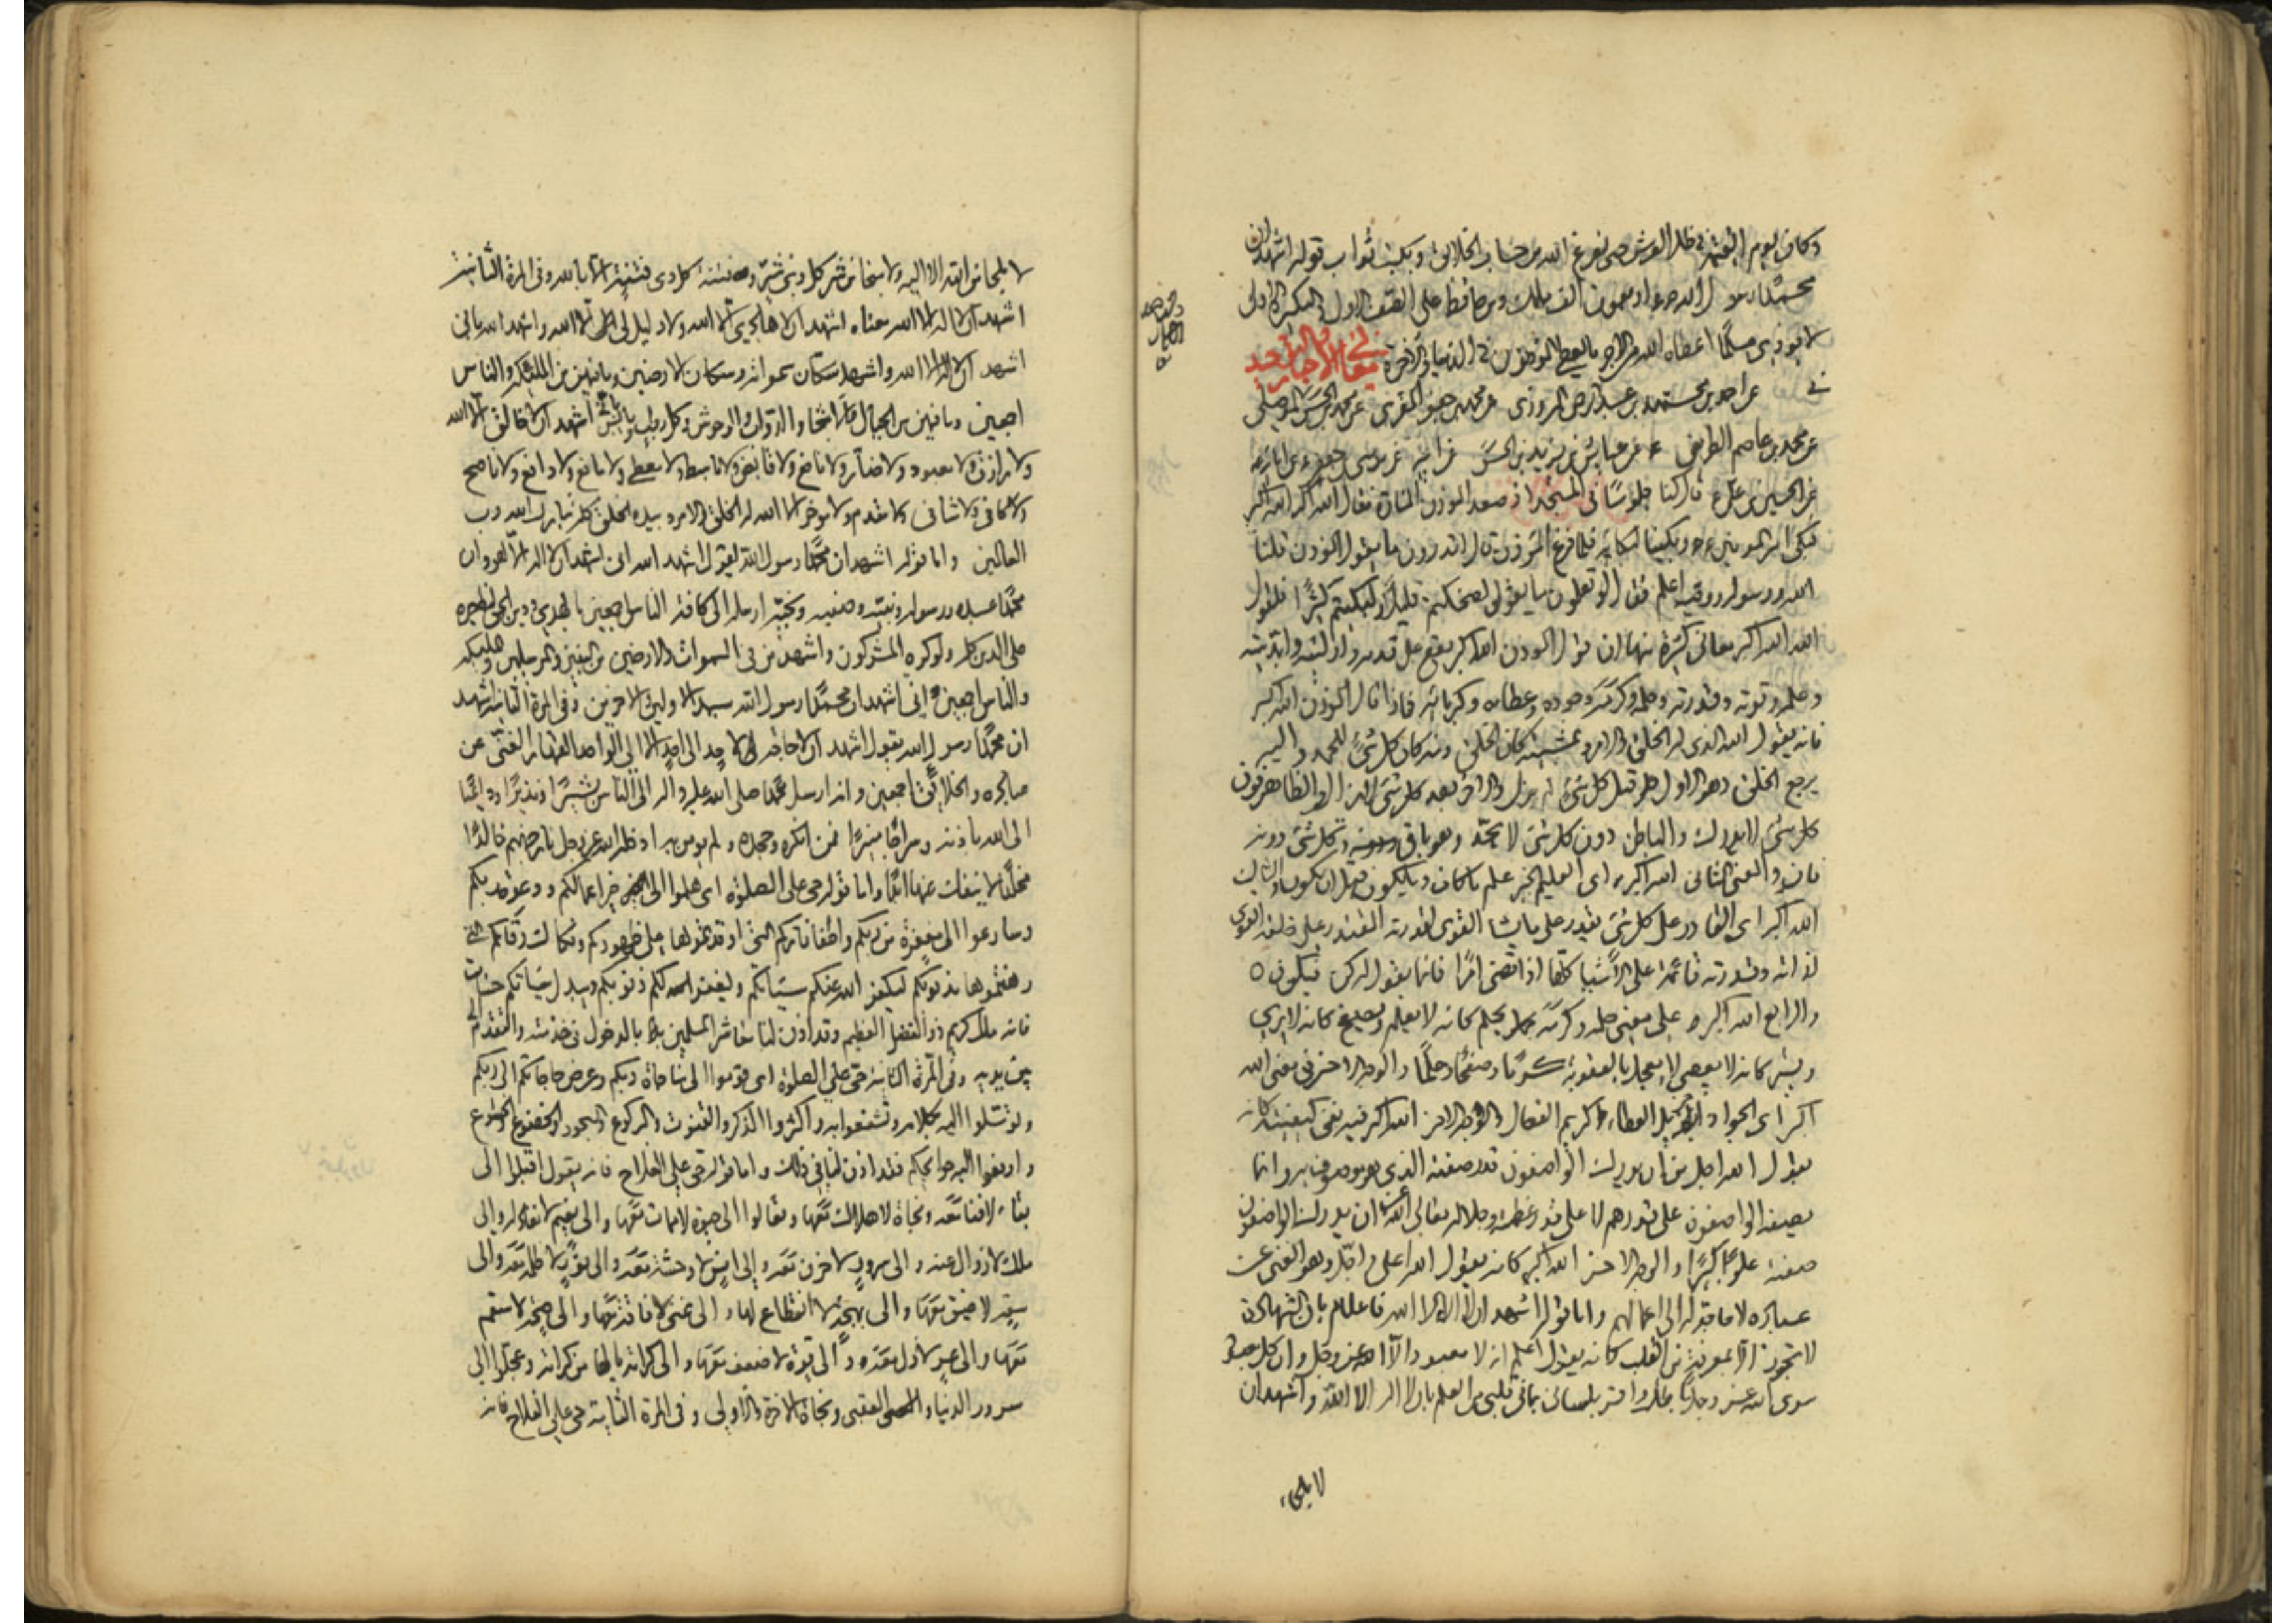 وكان يوم القيمة في ظل العرش حتى يفرغ الله من حساب الخلائق ويكتب ثواب قوله اشهد ان
محمدا رسول الله ص اربعون الف ملك ومن حافظ على الصف الاول والتكبيرة الاولى
لا يوذي مسلما اعطاه الله من الاجر ما يعطى الموذنون في الدنيا والاخرة
في معاني الاخبار
عن احمد بن محمد بن عبد الرحمن المروزي عن محمد بن جعفر المقري عن محمد بن الحسن الموصلي
عن محمد بن عاصم الطريفي عن عياش بن يزيد بن الحسن عن ابيه عن موسى بن جعفر ع عن ابائه
عن الحسين بن علي ع قال كنا جلوسا في المسجد اذ صعد الموذن المنارة فقال الله اكبر الله اكبر
فبكى امير المومنين ع وبكينا لبكائه فلما فرغ الموذن قال اتدرون ما يقول الموذن قلنا
الله ورسوله ووصيه اعلم فقال لو تعلمون ما يقول لضحكتم قليلا ولبكيتم كثيرا فلقوله
الله اكبر معاني كثيرة منها ان قول الموذن الله اكبر يقع على قدمه وازليته وابديته
وعلمه وقوته وقدرته وحلمه وكرمه وجوده وعطائه وكبريائه فاذا قال الموذن الله اكبر
فانه يقول الله الذي له الخلق والامر وبمشيته كان الخلق ومنه كان كل شئ للخلق واليه
يرجع الخلق وهو الاول قبل كل شئ لم يزل والاخر بعد كل شئ لا يزال والظاهر فوق
كل شئ لا يدرك والباطن دون كل شئ لا يحد وهو باق وكل شئ دونه
فان والمعنى الثاني الله اكبر اي العليم الخبير علم ما كان وما يكون قبل ان يكون والثالث
الله اكبر اي القادر على كل شئ يقدر على ما يشا القوي لقدرته المقتدر على خلقه القوي
لذاته وقدرته قائمة على الاشيا كلها اذا قضى امرا فانما يقول له كن فيكون
والرابع الله اكبر على معنى حلمه وكرمه يحلم كانه لا يعلم ويصفح كانه لا يرى
ويستر كانه لا يعصى لا يعجل بالعقوبة كرما وصفحا وحلما والوجه الاخر في معنى الله
اكبر اي الجواد جزيل العطاء كريم الفعال والوجه الاخر الله اكبر فيه نفي كيفيته كانه
يقول الله اجل من ان يدرك الواصفون قدر صفته الذي هو موصوف به وانما
يصفه الواصفون على قدرهم لا على قدر عظمته وجلاله تعالى الله عن ان يدرك الواصفون
صفته علوا كبيرا والوجه الاخر الله اكبر كانه يقول الله اعلى واجل وهو الغني عن
عباده لا حاجة له الى اعمالهم واما قوله اشهد ان لا اله الا الله فاعلام بان الشهادة
لا تجوز الا بمعرفة من القلب كانه يقول اعلم انه لا معبود الا الله عز وجل وان كل معبود
سوى الله عز وجل باطل واقر بلساني بما في قلبي من العلم بان لا اله الا الله واشهد ان
لا ملجاء
لا ملجا من الله الا اليه ولا منجا من شر كل ذي شر وفتنة كل ذي فتنة الا بالله وفي المرة الثانية
اشهد ان لا اله الا الله معناه اشهد ان لا هادي الا الله ولا دليل لي الا الله واشهد الله باني
اشهد ان لا اله الا الله واشهد سكان سمواته وسكان الارضين وما فيهن من الملئكة والناس
اجمعين وما فيهن من الجبال والاشجار والدواب والوحوش وكل رطب ويابس باني اشهد ان لا خالق الا الله
ولا رازق ولا معبود ولا ضار ولا نافع ولا قابض ولا باسط ولا معطي ولا مانع ولا دافع ولا ناصح
ولا كافي ولا شافي ولا مقدم ولا موخر الا الله له الخلق والامر وبيده الخير كله تبارك الله رب
العالمين واما قوله اشهد ان محمدا رسول الله يقول اشهد الله اني اشهد ان لا اله الا هو وان
محمدا عبده ورسوله ونبيه وصفيه ونجيه ارسله الى كافة الناس اجمعين بالهدى ودين الحق ليظهره
على الدين كله ولو كره المشركون واشهد من في السموات والارضين من النبيين والمرسلين والملئكة
والناس اجمعين اني اشهد ان محمدا رسول الله سيد الاولين والاخرين وفي المرة الثانية اشهد
ان محمدا رسول الله يقول اشهد ان لا حاجة لاحد الى احد الا الى الله الواحد القهار الغني عن
عباده والخلائق اجمعين وانه ارسل محمدا صلى الله عليه واله الى الناس بشيرا ونذيرا وداعيا
الى الله باذنه وسراجا منيرا فمن انكره وجحده ولم يومن به ادخله الله عز وجل نار جهنم خالدا
مخلدا لا ينفك عنها ابدا واما قوله حي على الصلوة اي هلموا الى خير اعمالكم ودعوة ربكم
وسارعوا الى مغفرة من ربكم واطفا ناركم التي اوقدتموها على ظهوركم وفكاك رقابكم التي
رهنتموها بذنوبكم ليكفر الله عنكم سيئاتكم ويغفر لكم ذنوبكم ويبدل سيئاتكم حسنات
فانه ملك كريم ذو الفضل العظيم وقد اذن لنا معاشر المسلمين بالدخول في خدمته والتقدم الى
بين يديه وفي المرة الثانية حي على الصلوة اي قوموا الى مناجاة ربكم وعرض حاجاتكم الى ربكم
وتوسلوا اليه بكلامه وتشفعوا به واكثروا الذكر والقنوت والركوع والسجود والخضوع والخشوع
وارفعوا اليه حوائجكم فقد اذن لنا في ذلك واما قوله حي على الفلاح فانه يقول اقبلوا الى
بقاء لا فناء معه ونجاة لا هلاك معها وتعالوا الى حيوة لا ممات معها والى نعيم لا نفاد له والى
ملك لا زوال عنه والى سرور لا حزن معه والى انس لا وحشة معه والى نور لا ظلمة معه والى
سعة لا ضيق معها والى بهجة لا انقطاع لها والى غنى لا فاقة معها والى صحة لا سقم
معها والى عز لا ذل معه والى قوة لا ضعف معها والى كرامة يا لها من كرامة وعجلوا الى
سرور الدنيا والعقبى ونجاة الاخرة والاولى وفي المرة الثانية حي على الفلاح فانه